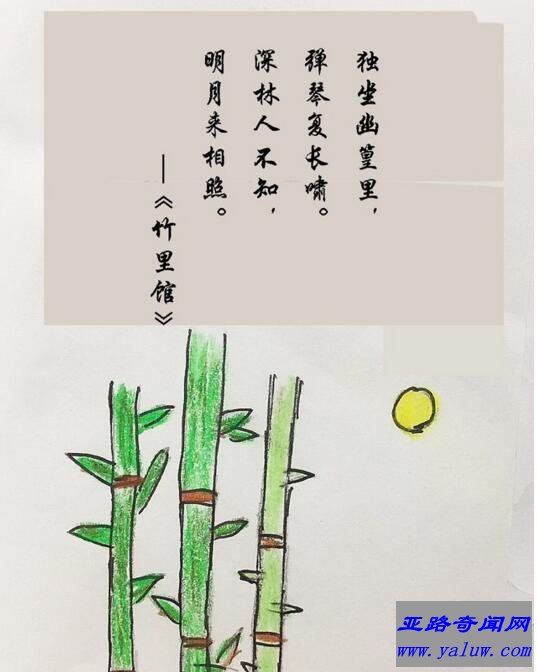 独坐幽篁里，
弹琴复长啸。
深林人不知，
明月来相照。
—《竹里馆》
亚路奇闻网
www.yaluw.com